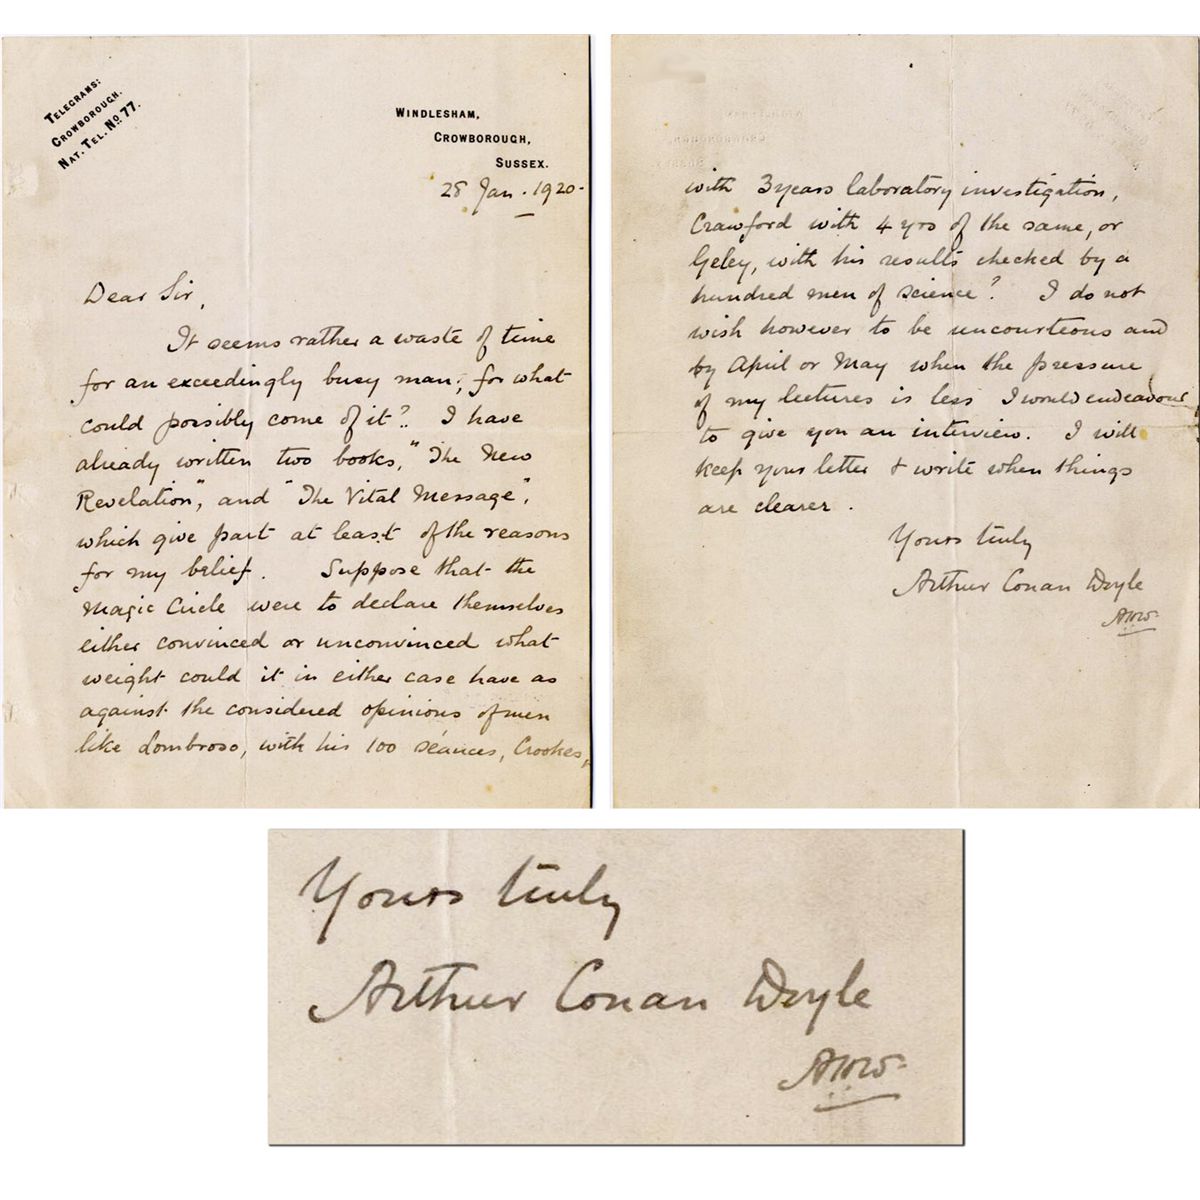 TELEGRAMS:
CROWBOROUGH.
NAT. TEL. No 77.
WINDLESHAM,
CROWBOROUGH,
SUSSEX.
28 Jan. 1920.
Dear Sir,
It seems rather a waste of time
for an exceedingly busy man; for what
could possibly come of it? I have
already written two books, "The New
Revelation", and "The Vital Message",
which give part at least of the reasons
for my belief. Suppose that the
Magic Circle were to declare themselves
either convinced or unconvinced what
weight could it in either case have as
against the considered opinions of men
like Lombroso, with his 100 séances, Crookes,
with 3 years laboratory investigation,
Crawford with 4 yrs of the same, or
Geley, with his results checked by a
hundred men of science? I do not
wish however to be uncourteous and
by April or May when the pressure
of my lectures is less I would endeavour
to give you an interview. I will
keep your letter & write when things
are clearer.
Yours truly
Arthur Conan Doyle
AWW.
Yours truly
Arthur Conan Doyle
AWW.